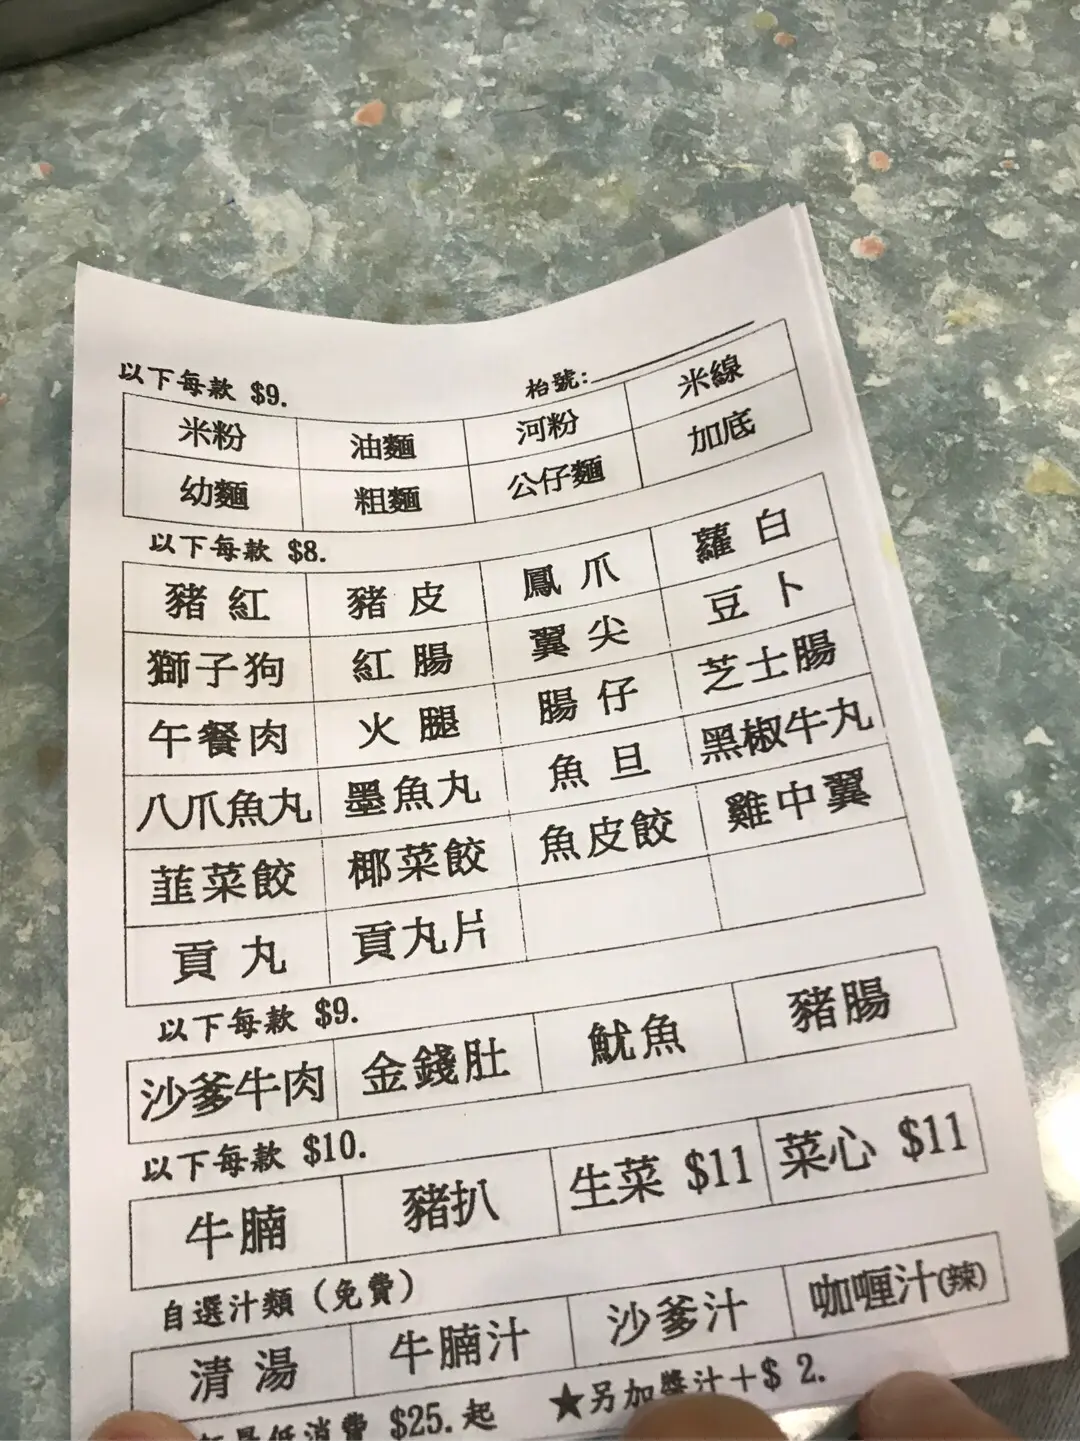 以下每款 $9. 枱號:
米粉 油麵 河粉 米線
幼麵 粗麵 公仔麵 加底
以下每款 $8.
豬紅 豬皮 鳳爪 蘿白
獅子狗 紅腸 翼尖 豆卜
午餐肉 火腿 腸仔 芝士腸
八爪魚丸 墨魚丸 魚旦 黑椒牛丸
韮菜餃 椰菜餃 魚皮餃 雞中翼
貢丸 貢丸片
以下每款 $9.
沙爹牛肉 金錢肚 魷魚 豬腸
以下每款 $10.
牛腩 豬扒 生菜 $11 菜心 $11
自選汁類(免費)
清湯 牛腩汁 沙爹汁 咖喱汁(辣)
最低消費 $25.起 ★另加醬汁+$ 2.